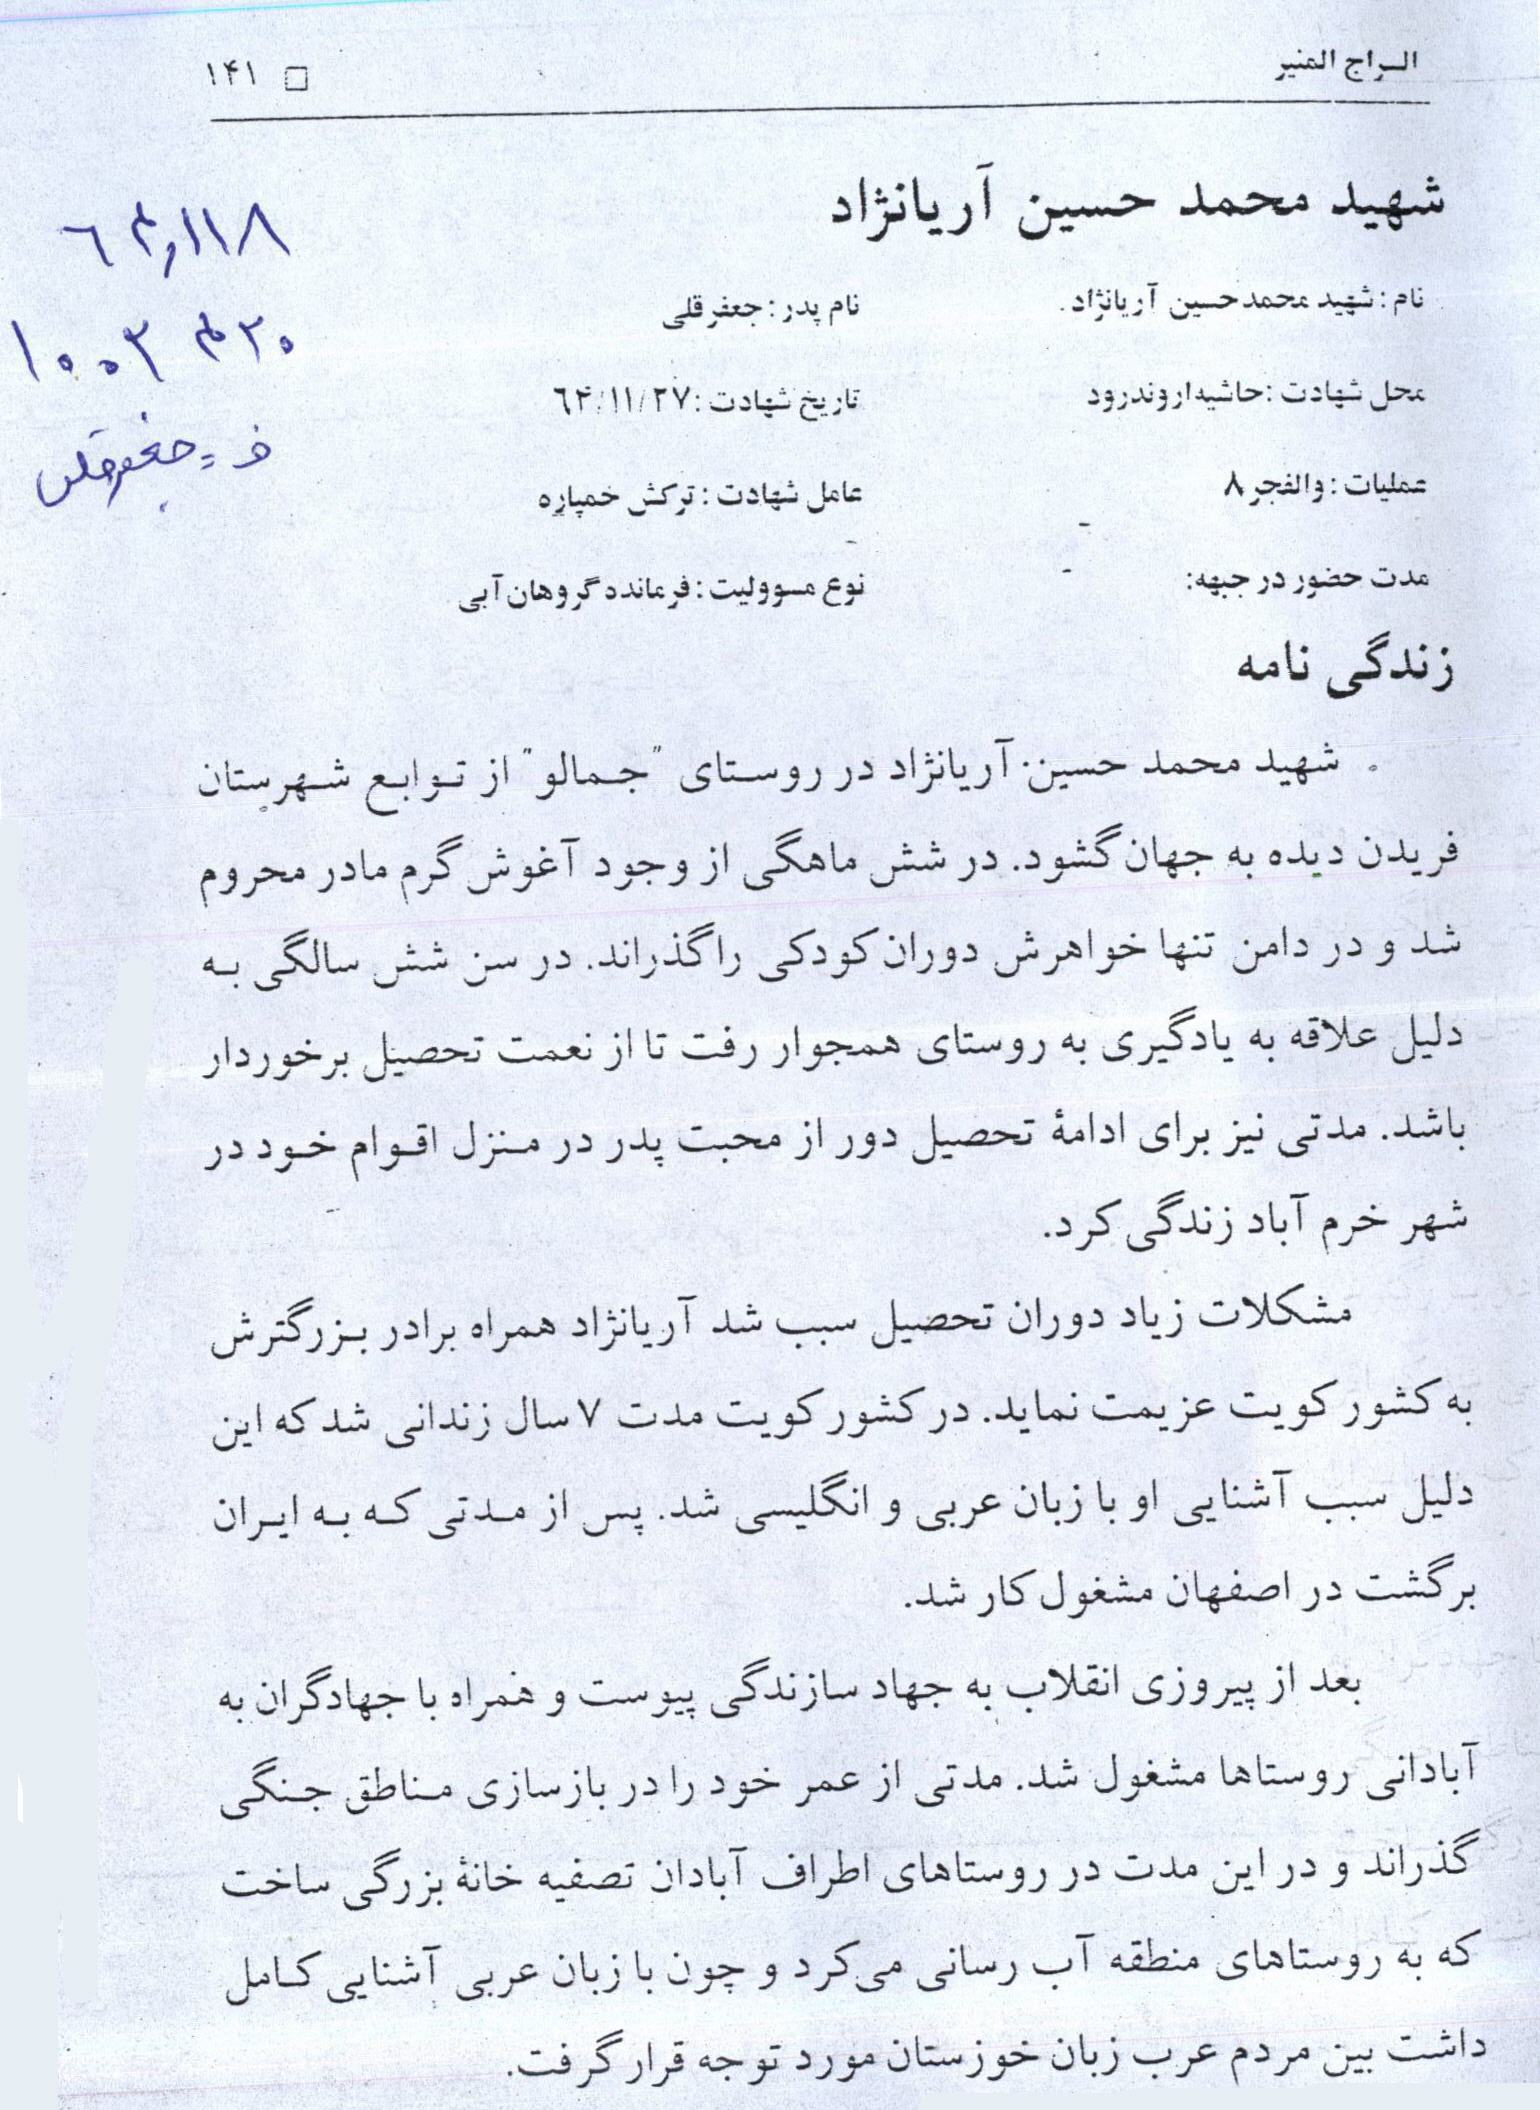 الـراج المنیر
□ ۱۴۱
شهید محمد حسین آریانژاد
نام: شهید محمدحسین آریانژاد.
نام پدر: جعفرقلی
محل شهادت: حاشیه اروندرود
تاریخ شهادت: ۶۴/۱۱/۲۷
عملیات: والفجر ۸
عامل شهادت: ترکش خمپاره
مدت حضور در جبهه:
نوع مسوولیت: فرمانده گروهان آبی
زندگی نامه
شهید محمد حسین آریانژاد در روستای "جمالو" از توابع شهرستان
فریدن دیده به جهان گشود. در شش ماهگی از وجود آغوش گرم مادر محروم
شد و در دامن تنها خواهرش دوران کودکی را گذراند. در سن شش سالگی به
دلیل علاقه به یادگیری به روستای همجوار رفت تا از نعمت تحصیل برخوردار
باشد. مدتی نیز برای ادامهٔ تحصیل دور از محبت پدر در منزل اقوام خود در
شهر خرم آباد زندگی کرد.
مشکلات زیاد دوران تحصیل سبب شد آریانژاد همراه برادر بزرگترش
به کشور کویت عزیمت نماید. در کشور کویت مدت ۷ سال زندانی شد که این
دلیل سبب آشنایی او با زبان عربی و انگلیسی شد. پس از مدتی که به ایران
برگشت در اصفهان مشغول کار شد.
بعد از پیروزی انقلاب به جهاد سازندگی پیوست و همراه با جهادگران به
آبادانی روستاها مشغول شد. مدتی از عمر خود را در بازسازی مناطق جنگی
گذراند و در این مدت در روستاهای اطراف آبادان تصفیه خانهٔ بزرگی ساخت
که به روستاهای منطقه آب رسانی می‌کرد و چون با زبان عربی آشنایی کامل
داشت بین مردم عرب زبان خوزستان مورد توجه قرار گرفت.